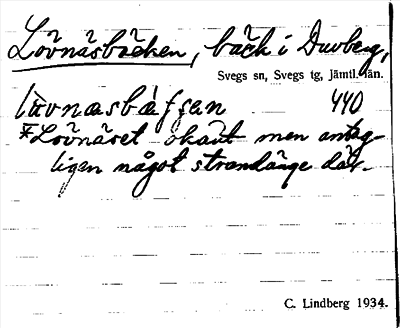 Lövnäsbäcken, bäck i Duvberg,
Svegs sn, Svegs tg, Jämtl. län.
làvnæsbæ̀ʃʃan 440
*Lövnäset okänt men antag-
ligen något strandänge där.
C. Lindberg 1934.